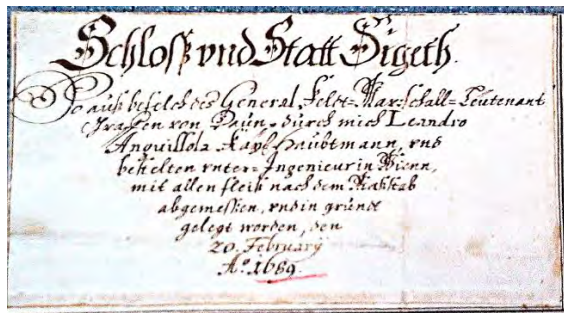 Schloß vnd Statt Sigeth.
So auß befelch des General Feldt=Marschall=Leutenant
Graffen von Daun, durch mich Leandro
Anguissola Kayl. Haubtmann, vnd
bestelten vnter=Ingenieur in Wienn,
mit allen fleiß nach dem Maßstab
abgemessen, vnd in grundt
gelegt worden, den
20. February
Aº. 1689.